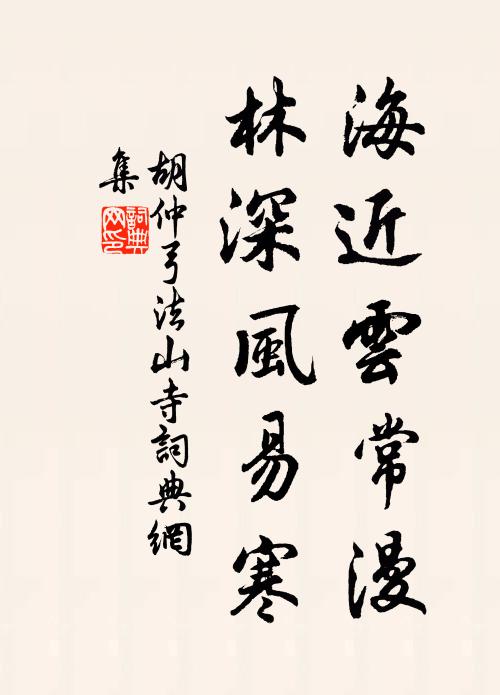 海近雲常漫
林深風易寒
胡仲弓法山寺詞典網
集
詞典网印